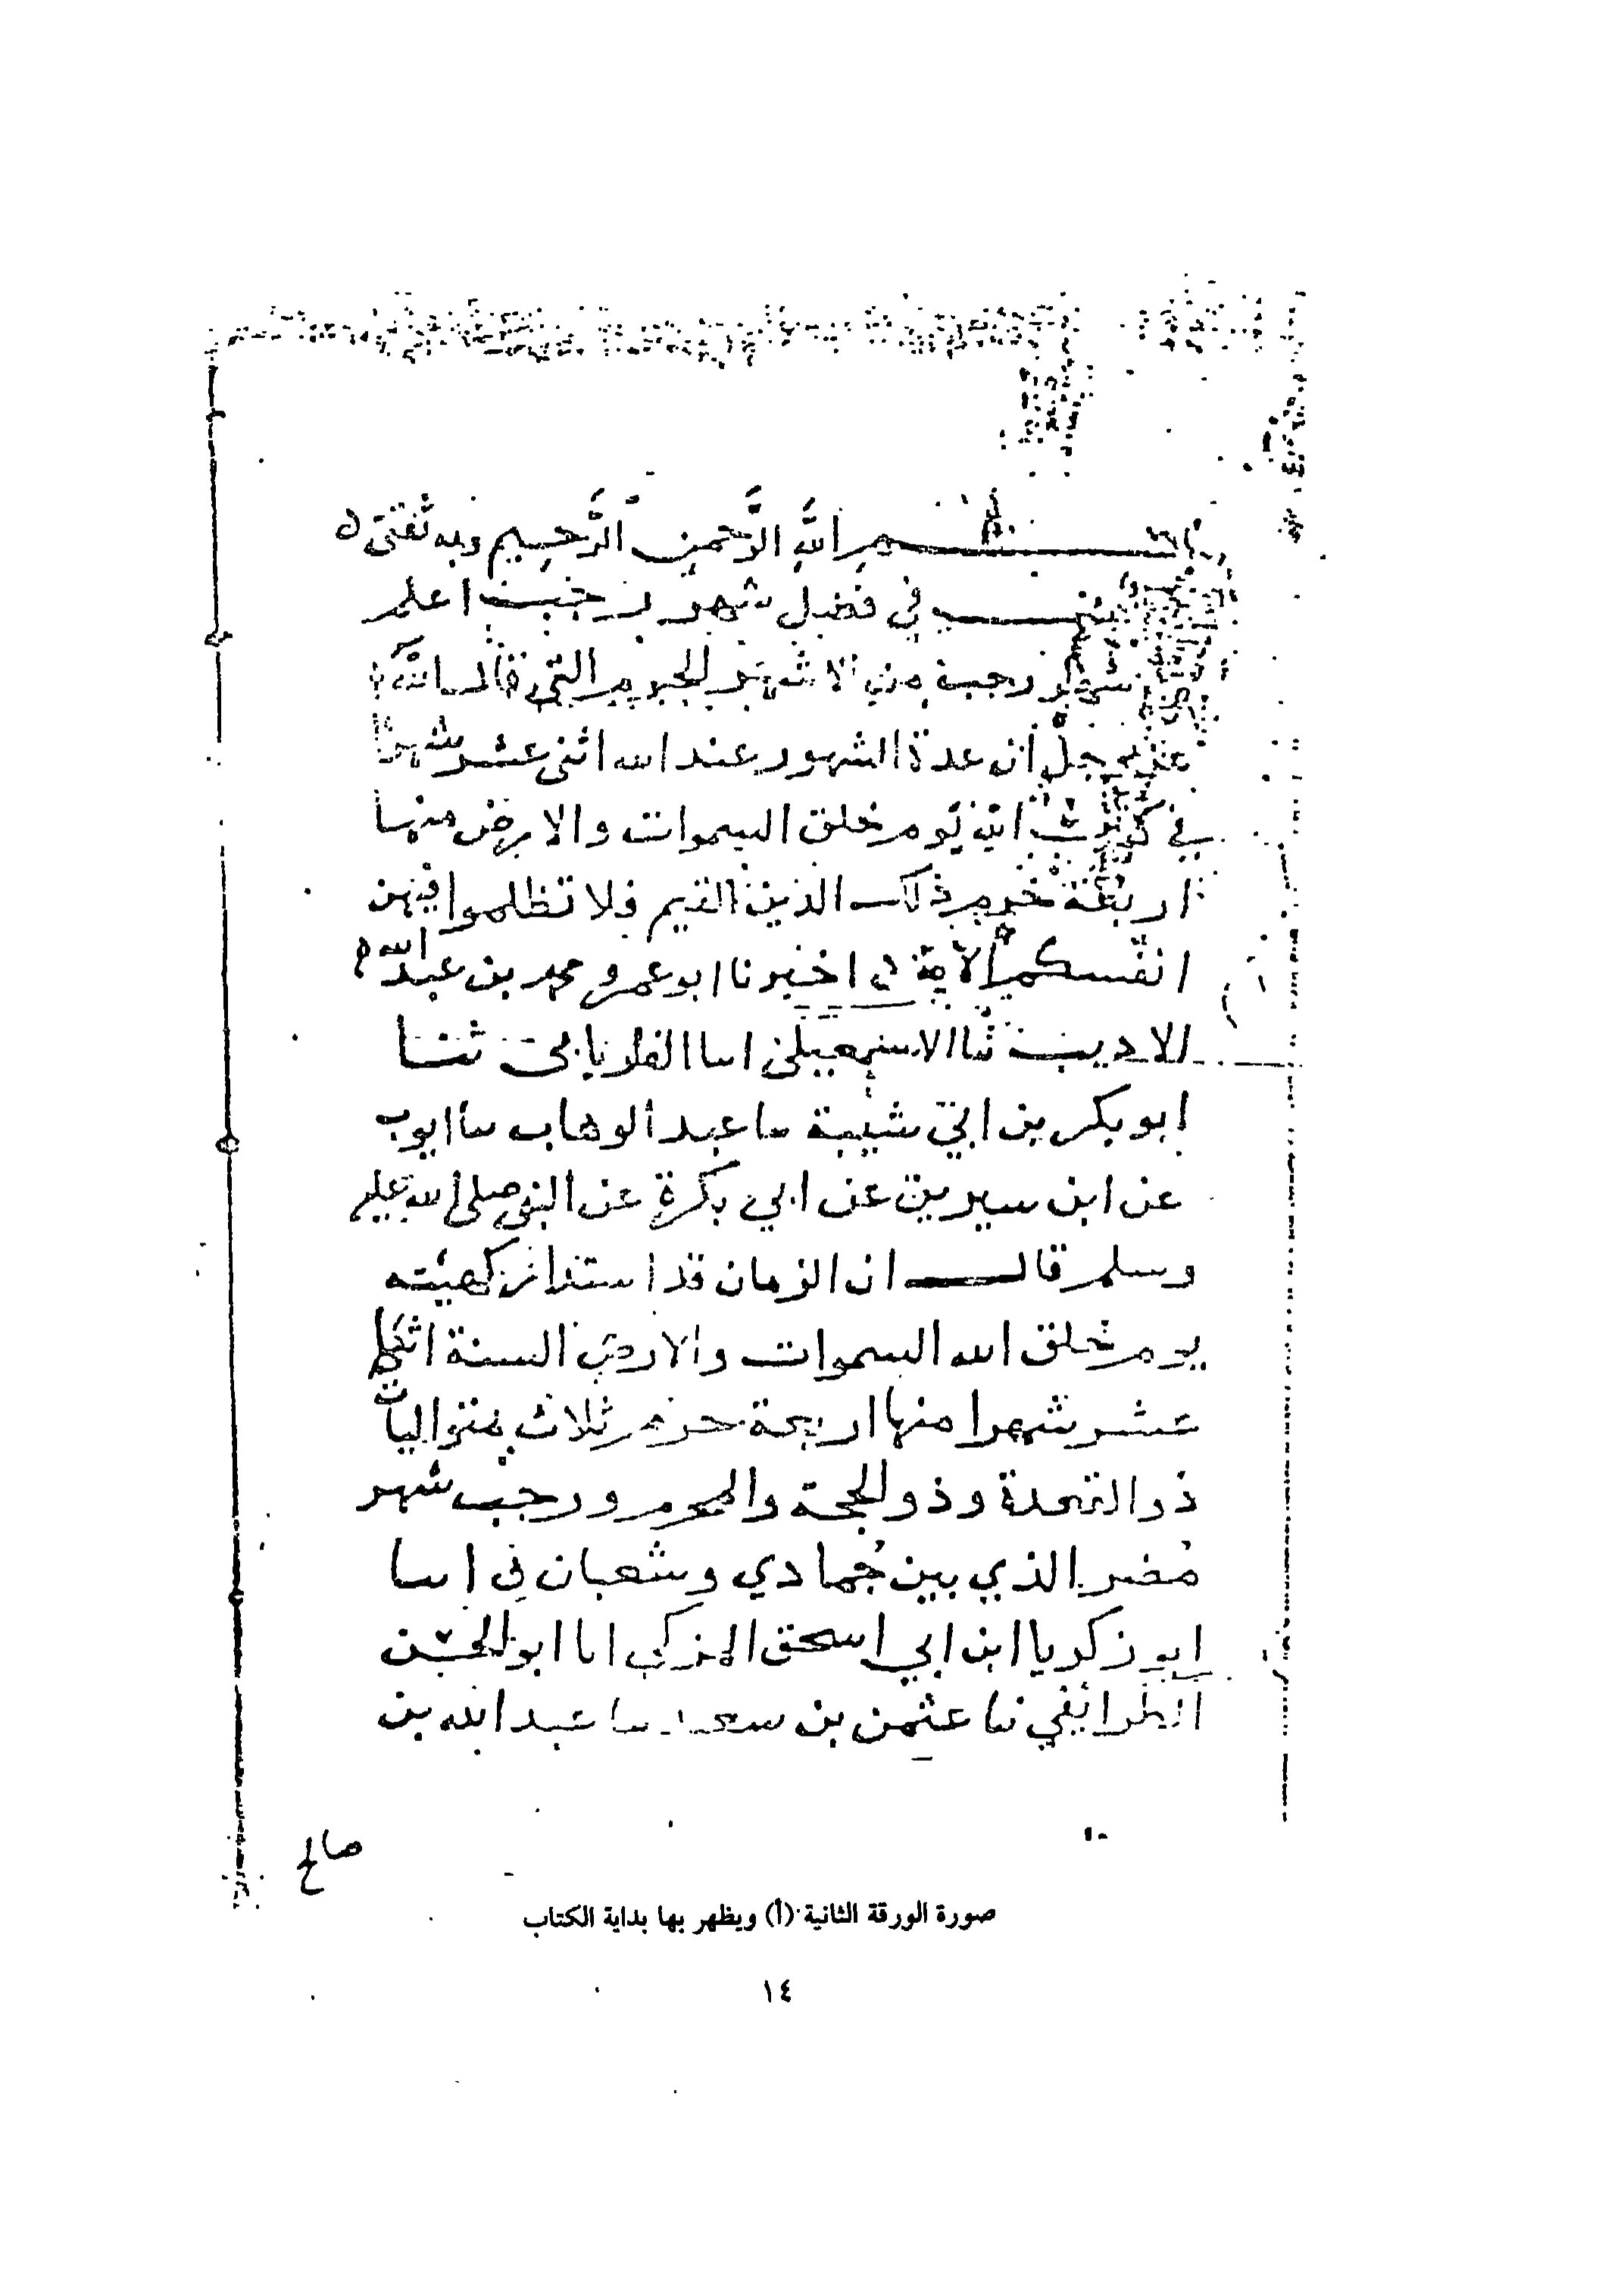 بسم الله الرَّحمن الرَّحيم وبه ثقتي ه
في فضل شهر رجب اعلم
شهر رجب من الاشهر الحرم التي قال الله
عز وجل ان عدة الشهور عند الله اثنى عشر شهرا
في كتاب الله يوم خلق السموات والارض منها
اربعة حرم ذلك الدين القيم فلا تظلموا فيهن
انفسكم الآية ه اخبرنا ابو عمرو محمد بن عبد الله
الاديب ثنا الاسمعيلي اسا الفاريابي ثنا
ابو بكر بن ابي شيبة سا عبد الوهاب سا ايوب
عن ابن سيرين عن ابي بكرة عن النبي صلى الله عليه
وسلم قال ان الزمان قد استدار كهيئته
يوم خلق الله السموات والارض السنة اثنا
عشر شهرا منها اربعة حرم ثلاث متواليات
ذو القعدة وذو الحجة والمحرم ورجب شهر
مُضر الذي بين جُمادي وشعبان ه اسا
ابو زكريا ابن ابي اسحق المزكي انا ابو الحسن
الطرائفي سا عثمن بن سعيد سا عبد الله بن
صالح
صورة الورقة الثانية (أ) ويظهر بها بداية الكتاب
١٤